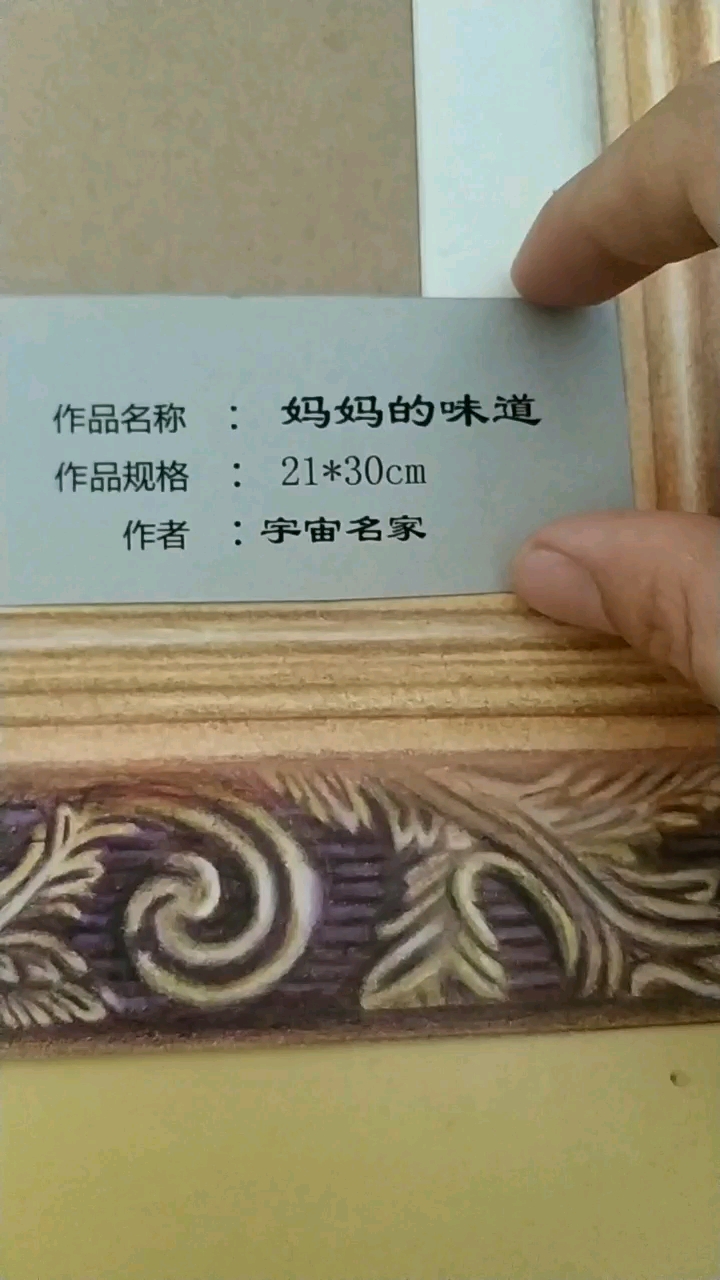 作品名称 : 妈妈的味道
作品规格 : 21*30cm
作者 : 宇宙名家